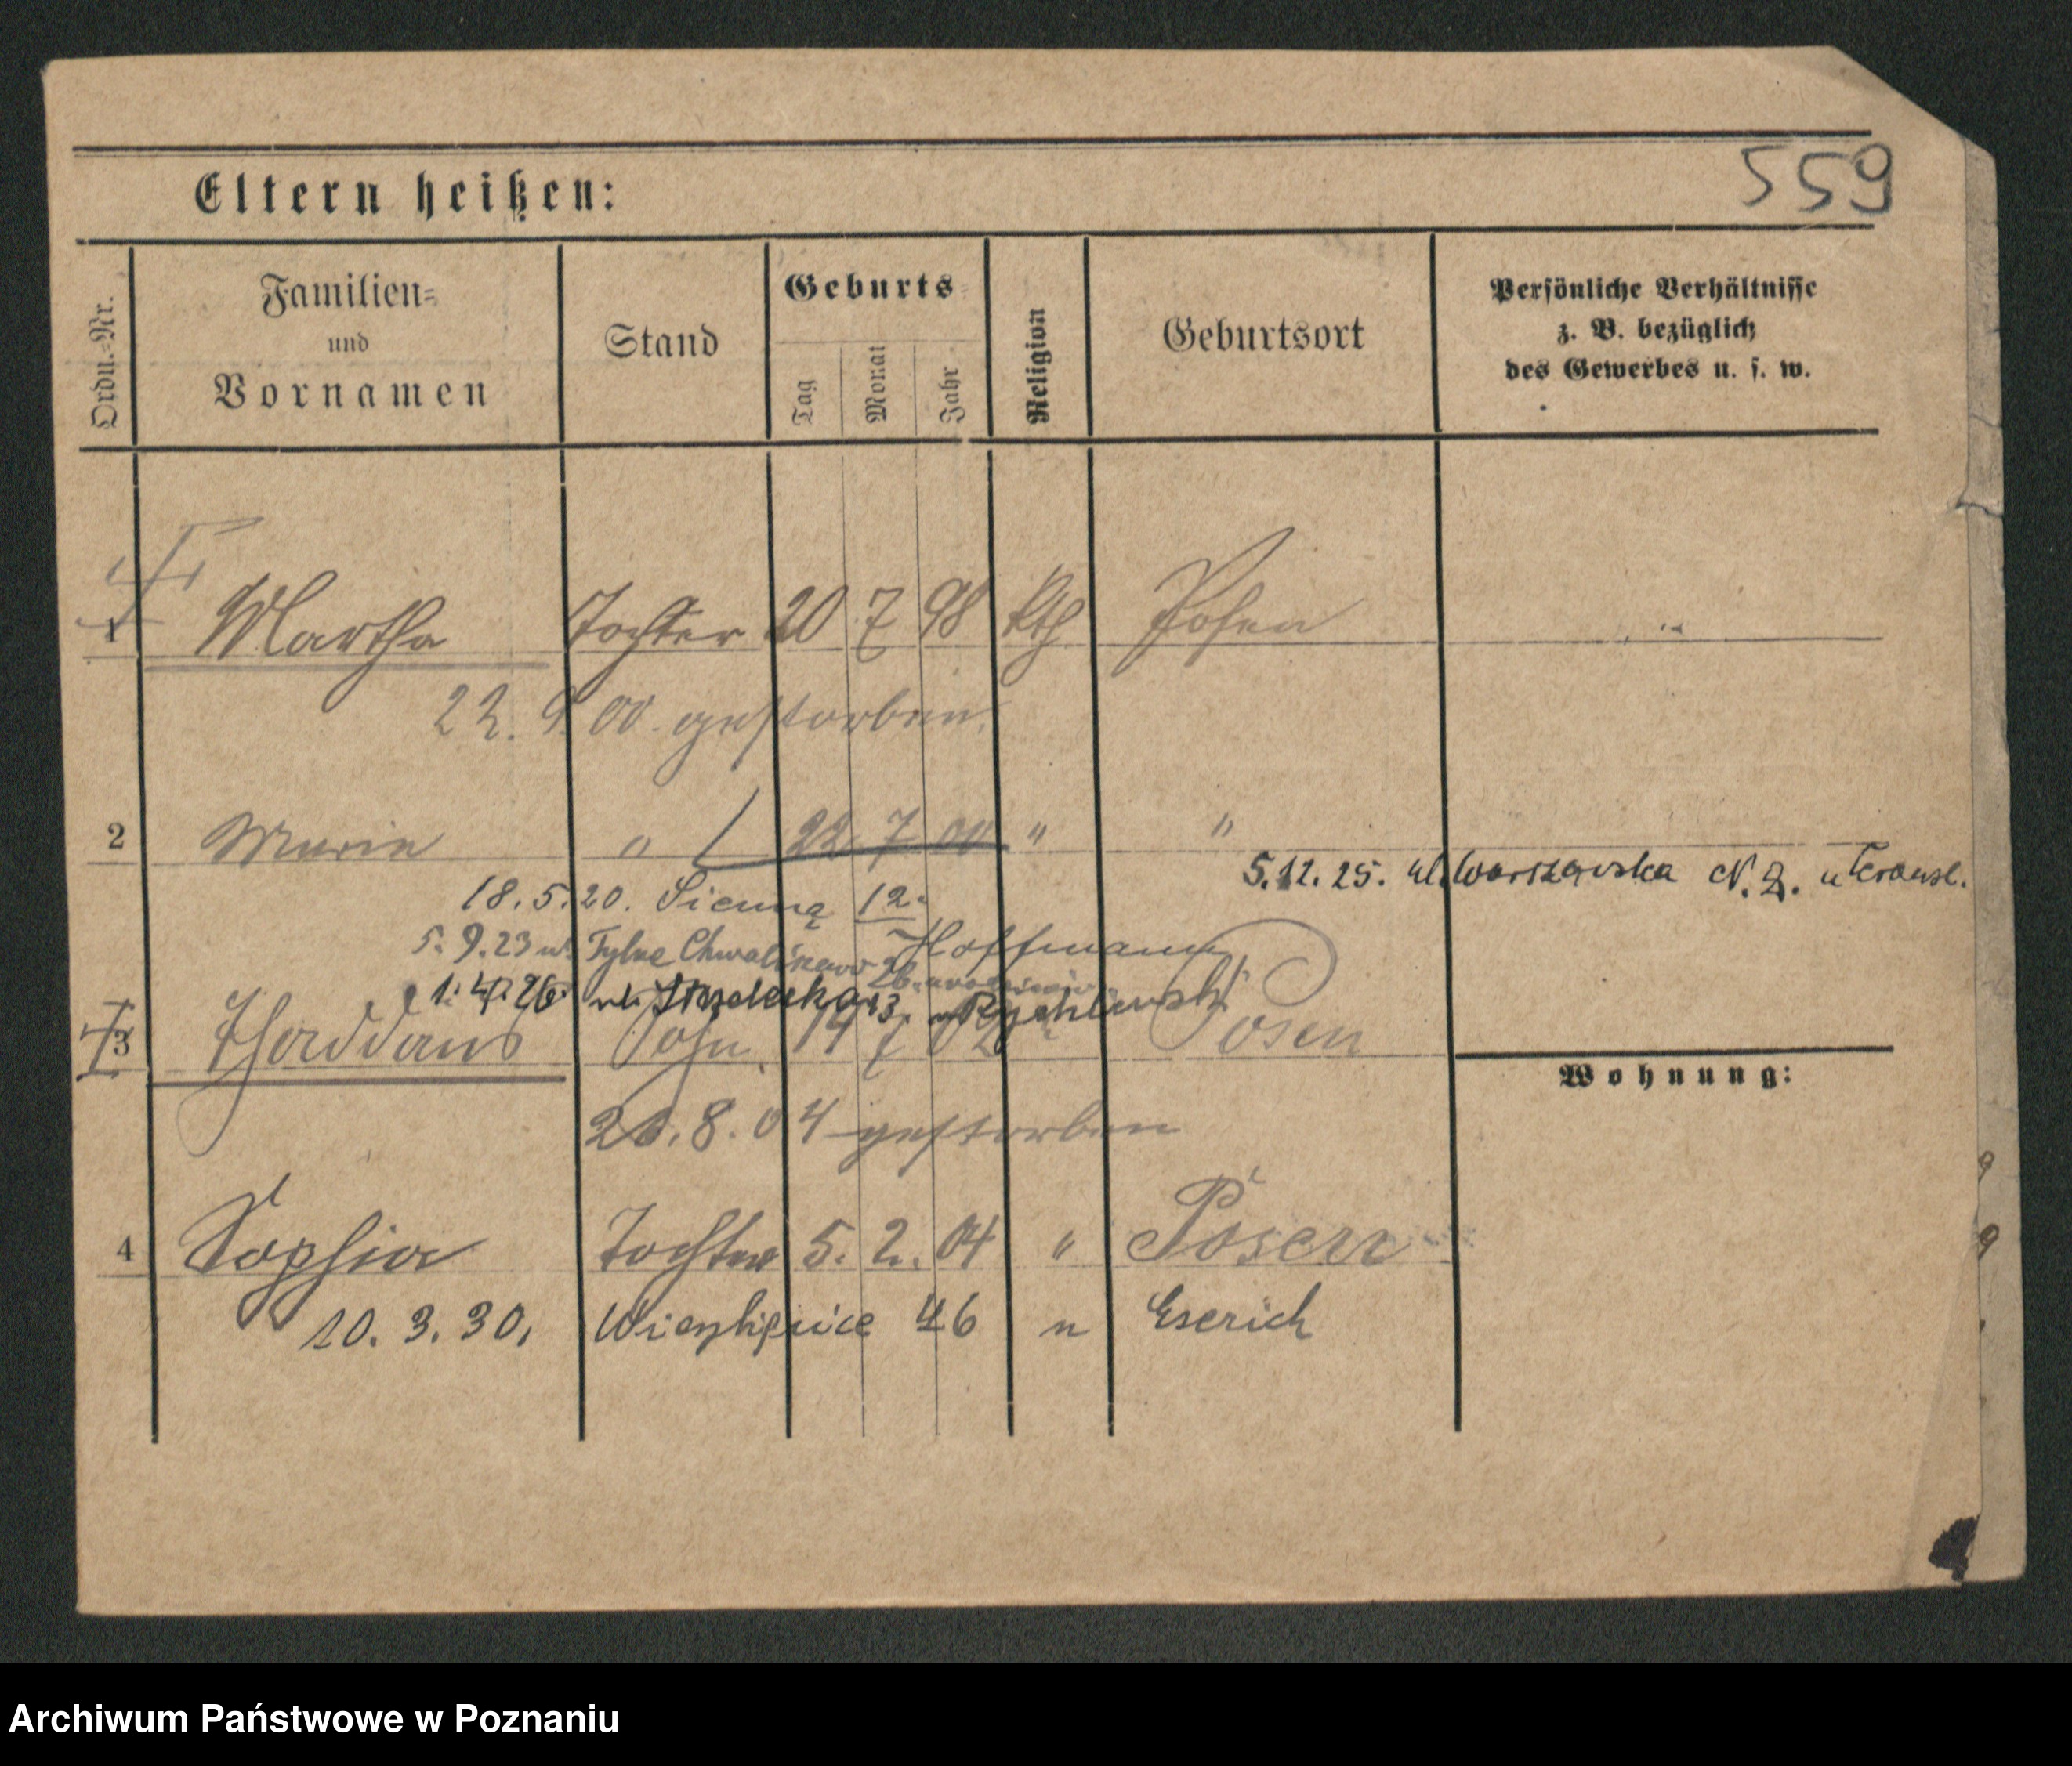 559
Eltern heißen:
Ordn.-Nr.
Familien-
und
Vornamen
Stand
Geburts
Tag
Monat
Jahr
Religion
Geburtsort
Persönliche Verhältnisse
z. B. bezüglich
des Gewerbes u. s. w.
1 Martha Tochter 20 7 98 Kth Posen
22. 9. 00 gestorben.
2 Maria " 22. 7 00 " "
5.12.25. ul. Warszawska N. 2. u
18.5.20. Sienną 12.
5.9.23 u. Tylne Chwaliszewo 26 Hoffmann
1.4.26 ul. Strzelecka 13. Rychlewski
3 Thaddäus Sohn 19 7 02 Posen
Wohnung:
20.8.04 gestorben
4 Sophia Tochter 5. 2. 04 " Posen
10. 3. 30, 46 u Eserich
Archiwum Państwowe w Poznaniu